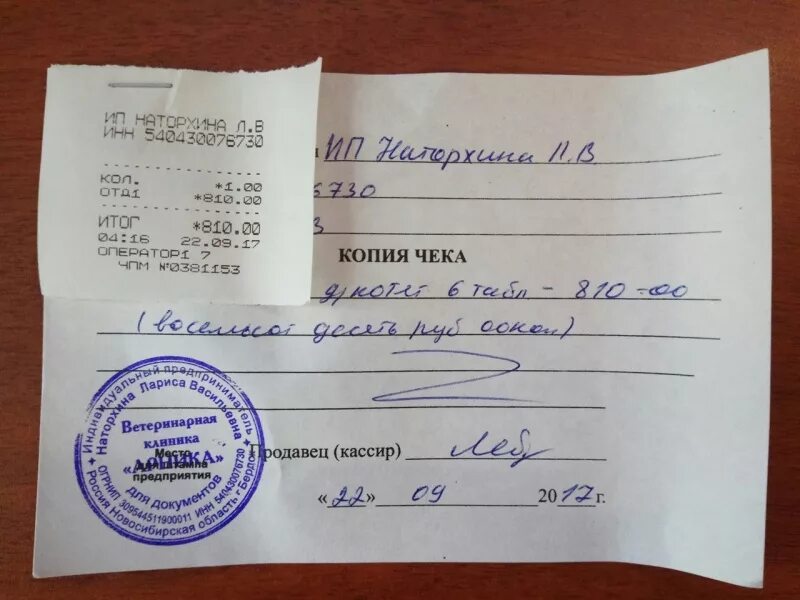 ИП НАТОРХИНА Л.В
ИНН 540430076730
КОЛ. *1.00
ОТД1 *810.00
ИТОГ *810.00
04:16 22.09.17
ОПЕРАТОР1 7
ЧПМ №0381153
ИП Наторхина Л.В.
6730
КОПИЯ ЧЕКА
д/котят 6 табл - 810-00
(восемьсот десять руб 00коп)
Продавец (кассир)
«22» 09 2017 г.
Индивидуальный предприниматель
Наторхина Лариса Васильевна
Ветеринарная
клиника
Место
для штампа
предприятия
для документов
ОГРНИП 309544511900011 ИНН 540430076730
Россия Новосибирская область г Бердск